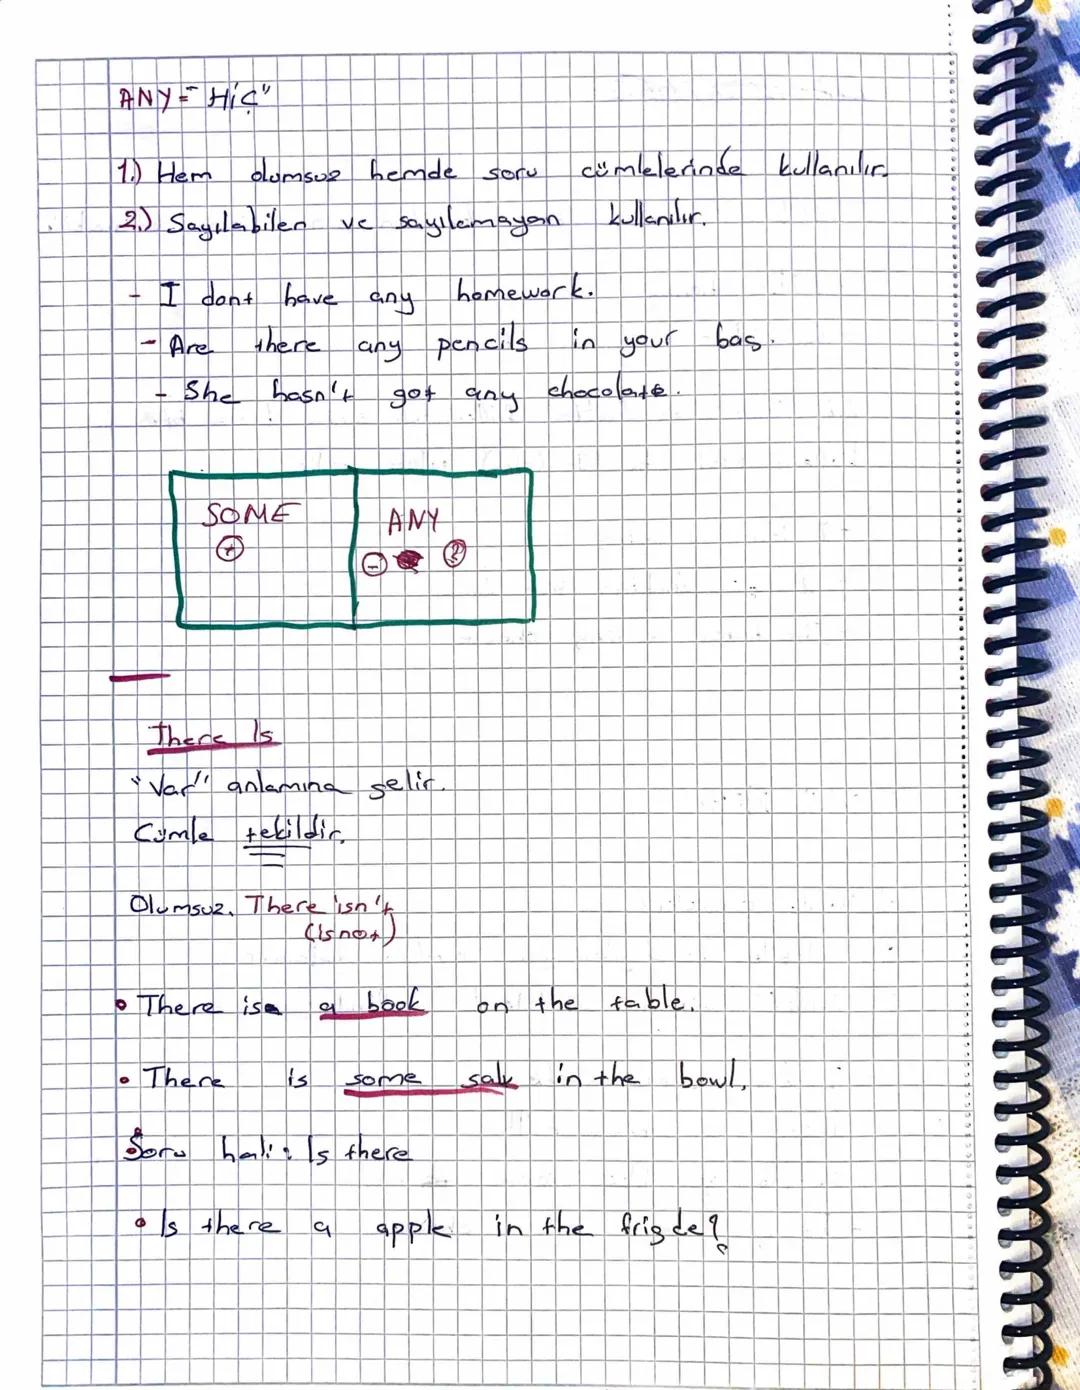 ANY = "Hiç"
1.) Hem olumsuz hemde soru cümlelerinde kullanılır.
2.) Sayılabilen ve sayılamayan kullanılır.
- I dont have any homework.
- Are there any pencils in your bag.
- She hasn't got any chocolate.
SOME ANY
+ - ?
There Is
"Var" anlamına gelir.
Cümle tekildir.
Olumsuz. There isn't
(is not)
• There is a book on the table.
• There is some salt in the bowl.
Soru hali: Is there
• Is there a apple in the frigde?